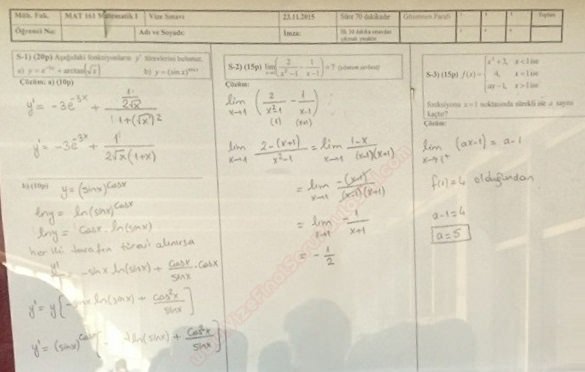 Müh. Fak. MAT 161 Matematik I Vize Sınavı 23.11.2015 Süre 70 dakikadır Gözetmen Parafı 1 2 3 Toplam
Öğrenci No: Adı ve Soyadı: İmza: İlk 30 dakika sınavdan çıkmak yasaktır
S-1) (20p) Aşağıdaki fonksiyonların y' türevlerini bulunuz.
a) y = e^{-3x} + arctan(√x) b) y = (sin x)^{cos x}
Çözüm: a) (10p)
y' = -3e^{-3x} + \frac{\frac{1}{2√x}}{1+(√x)^2}
y' = -3e^{-3x} + \frac{1}{2√x(1+x)}
b) (10p) y = (sinx)^{cosx}
lny = ln(sinx)^{cosx}
lny = cosx. ln(sinx)
her iki tarafın türevi alınırsa
-sinx ln(sinx) + \frac{cosx}{sinx} . cosx
y' = y[-sinx ln(sinx) + \frac{cos^2x}{sinx}]
y' = (sinx)^{cosx} [- ln(sinx) + \frac{cos^2x}{sinx}]
S-2) (15p) lim_{x→1} (\frac{2}{x^2-1} - \frac{1}{x-1}) = ?
Çözüm:
lim_{x→1} (\frac{2}{x^2-1} - \frac{1}{x-1})
(1) (x+1)
lim_{x→1} \frac{2-(x+1)}{x^2-1} = lim_{x→1} \frac{1-x}{(x-1)(x+1)}
= lim_{x→1} \frac{-(x-1)}{(x-1)(x+1)}
= lim_{x→1} -\frac{1}{x+1}
= -\frac{1}{2}
S-3) (15p) f(x) = x^2+3, x<1 ise
4, x=1 ise
ax-1, x>1 ise
fonksiyonu x = 1 noktasında sürekli ise a sayısı
kaçtır?
Çözüm:
lim_{x→1^+} (ax-1) = a-1
f(1)=4 olduğundan
a-1=4
a=5